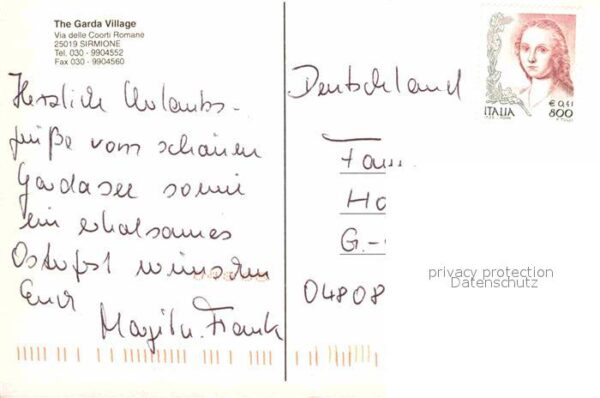 The Garda Village
Via delle Coorti Romane
25019 SIRMIONE
Tel. 030 - 9904552
Fax 030 - 9904560
Herzliche Urlaubs-
grüße vom schönen
Gardasee sowie
ein erholsames
Osterfest wünschen
Euch
Margit u. Frank
Deutschland
Fam
Ho
G.-
04808
€ 0,41
ITALIA 800
privacy protection
Datenschutz